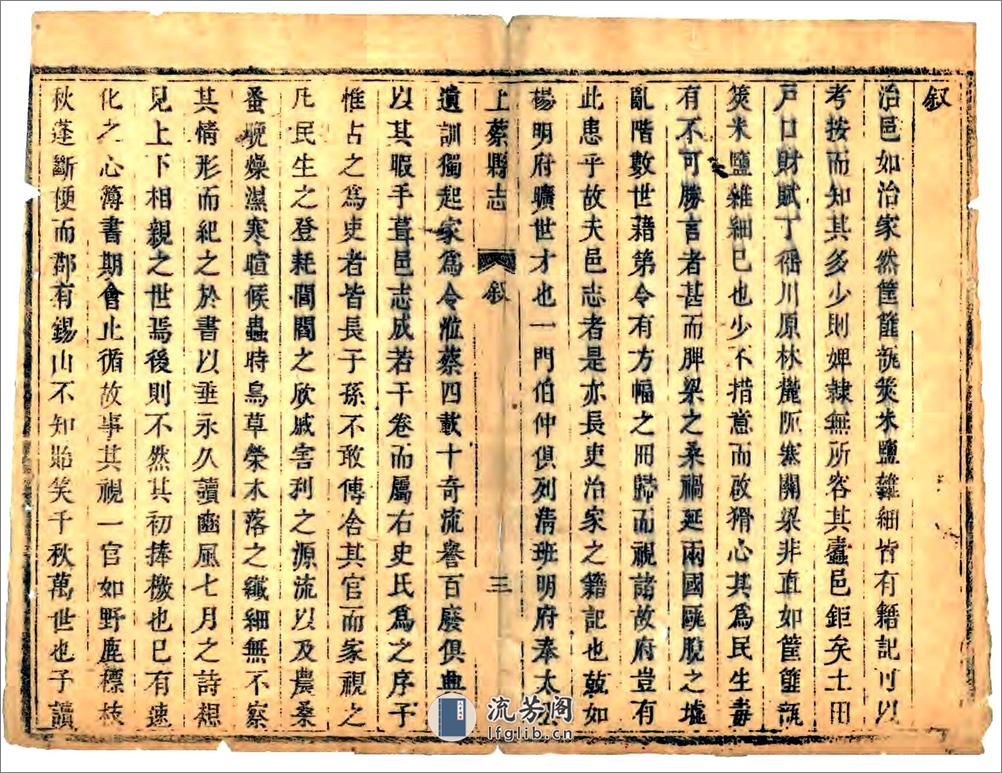 叙
治邑如治家然筐篚瓿甊米鹽雜細皆有籍記可以
考按而知其多少則婢隸無所容其蠹邑鉅矣土田
戶口財賦丁徭川原林麓阨塞關梁非直如筐篚瓿
米鹽雜細已也少不措意而啟猾心其為民生毒
有不可勝言者甚而脾梁之桑禍延兩國甌脫之墟
亂階數世藉第令有方幅之冊歸而視諸故府豈有
此患乎故夫邑志者是亦長吏治家之籍記也乾如
楊明府曠世才也一門伯仲俱列清班明府奉太
上蔡縣志 叙 三
遺訓獨起家為令涖蔡四載十奇流譽百廢俱典
以其暇手葺邑志成若干卷而屬右史氏為之序予
惟古之為吏者皆長子孫不敢傳舍其官而家視之
凡民生之登耗閭閻之欣戚害利之源流以及農桑
蚤晚燥濕寒暄候蟲時鳥草榮木落之纖細無不察
其情形而紀之於書以垂永久讀豳風七月之詩想
見上下相親之世焉後則不然其初捧檄也已有速
化之心簿書期會止循故事其視一官如野鹿標枝
秋蓬斷梗而郡有錫山不知貽笑千秋萬世也予讀
流芳阁
lfglib.cn